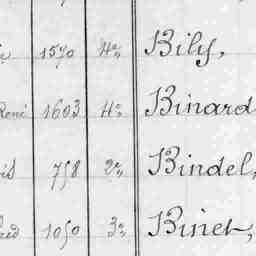 1570 4º Bily,
René 1603 4º Binard
758 2º Bindel,
1050 3º Binet,